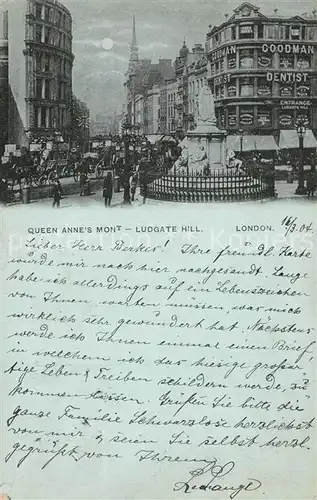 GOODMAN
DENTIST
ENTRANCE
LUDGATE HILL
QUEEN ANNE'S MONT – LUDGATE HILL. LONDON. 16/3.04.
Lieber Herr Berkes! Ihre freundl. Karte
wurde mir nach hier nachgesandt. Lange
habe ich allerdings auf ein Lebenszeichen
von Ihnen warten müssen, was mich
wirklich sehr gewundert hat. Nächstens
werde ich Ihnen einmal einen Brief,
in welchem ich das hiesige großar-
tige Leben & Treiben schildern werde, zu
kommen lassen. Grüßen Sie bitte die
ganze Familie Schwarzlose herzlichst
von mir & seien Sie selbst herzl.
gegrüßt von Ihrem